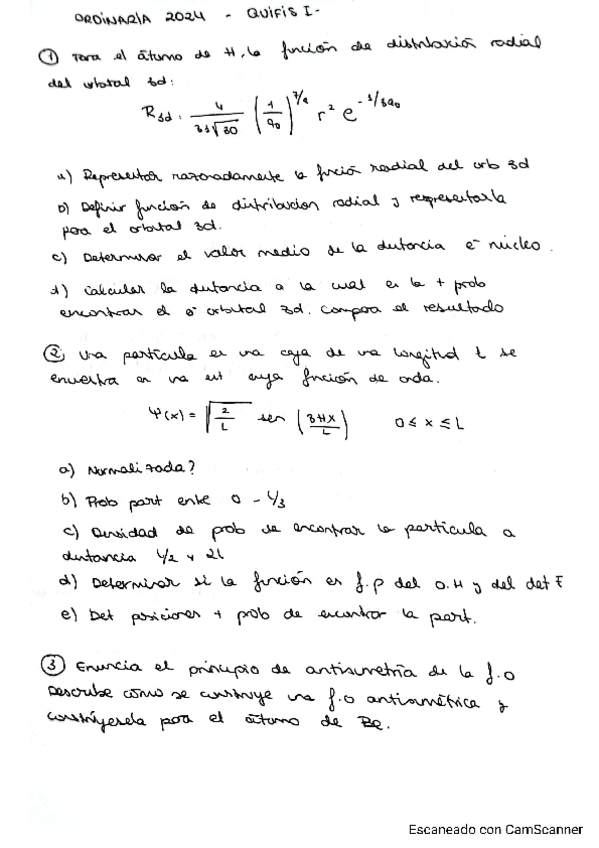 ORDINARIA 2024 - QUIFIS I -
① Para el átomo de H, la función de distribución radial
del orbital 3d:
R3d = 4 / 81√30 (1/a0)^7/2 r² e^-r/3a0
a) Representar razonadamente la función radial del orb 3d
b) Definir función de distribucion radial y representarla
para el orbital 3d.
c) Determinar el valor medio de la distancia e⁻ núcleo.
d) Calcular la distancia a la cual es la + prob
encontrar el e⁻ orbital 3d. Compara el resultado
② Una partícula en una caja de una longitud L se
encuentra en un est cuya función de onda.
Ψ(x) = √2/L sen (3πx/L) 0 ≤ x ≤ L
a) Normalizada?
b) Prob part entre 0 - L/3
c) Densidad de prob de encontrar la partícula a
distancia L/2 y 2L
d) Determinar si la función es f.p del O.H y del del
e) Det posiciones + prob de encontrar la part.
③ Enuncia el principio de antisimetría de la f.o
Describe cómo se construye una f.o antisimétrica y
constrúyesela para el átomo de Be.
Escaneado con CamScanner